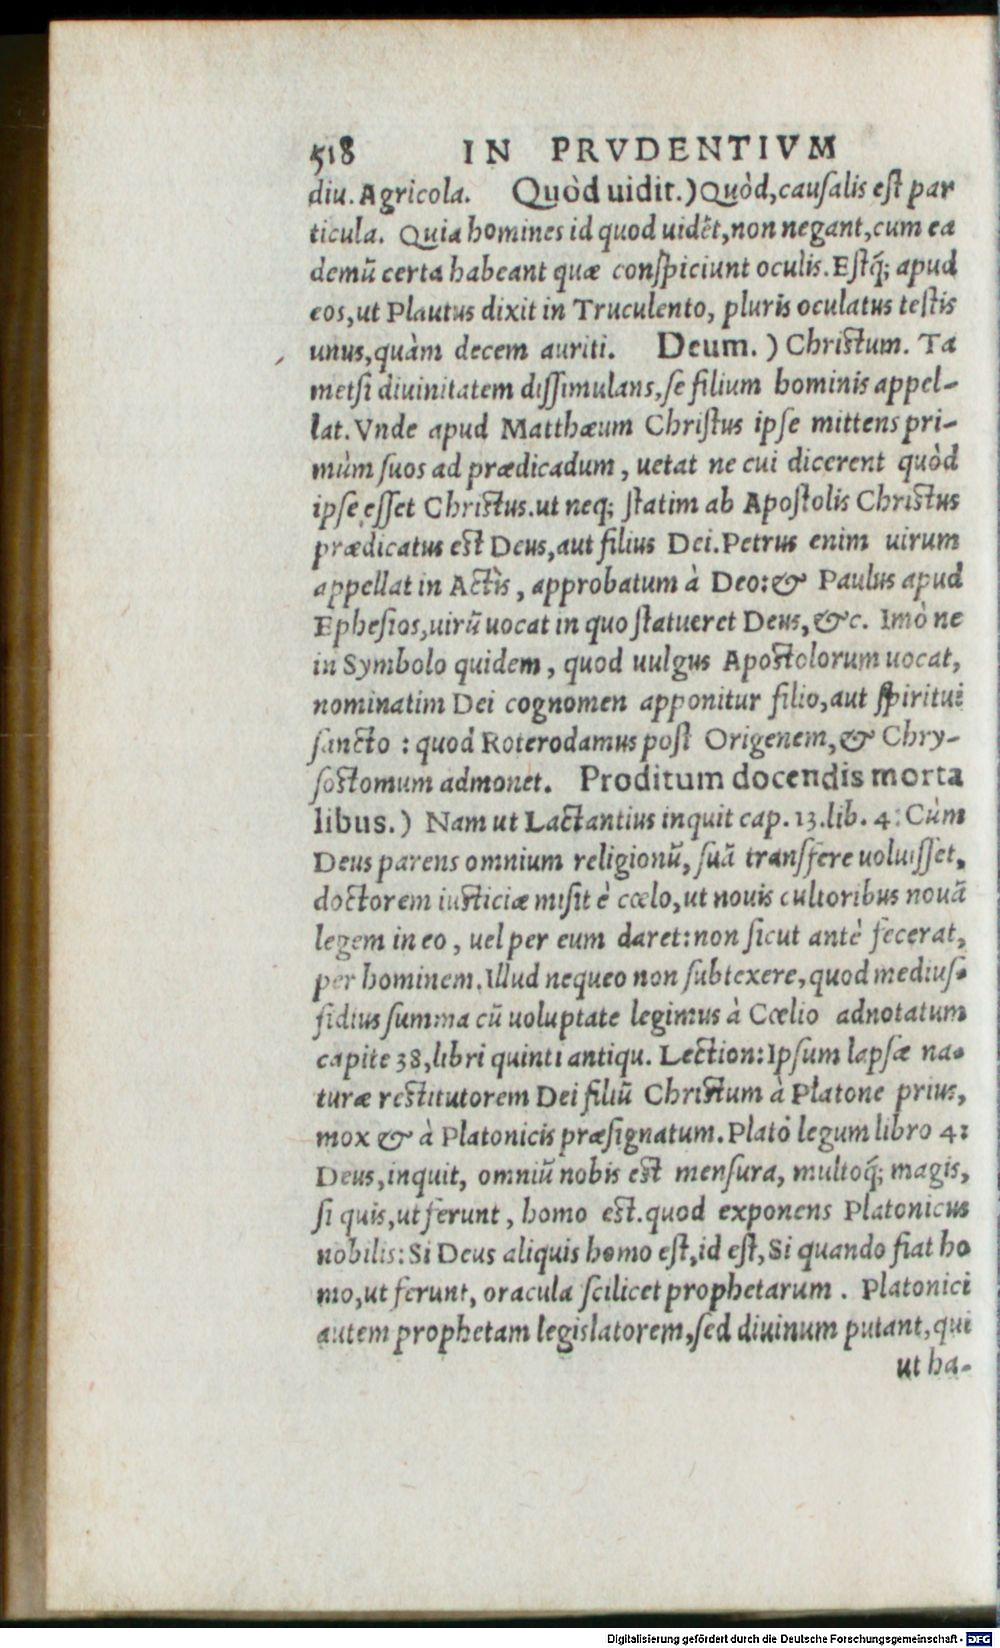 518 IN PRVDENTIVM
diu. Agricola. Quòd uidit.) Quòd, cauſalis eſt par
ticula. Quia homines id quod uidēt, non negant, cum ea
demū certa habeant quæ conſpiciunt oculis. Eſtq́; apud
eos, ut Plautus dixit in Truculento, pluris oculatus teſtis
unus, quàm decem auriti. Deum.) Chriſtum. Ta
metſi diuinitatem diſſimulans, ſe filium hominis appel-
lat. Vnde apud Matthæum Chriſtus ipſe mittens pri-
mùm ſuos ad prædicadum, uetat ne cui dicerent quòd
ipſe eſſet Chriſtus. ut neq; ſtatim ab Apoſtolis Chriſtus
prædicatus eſt Deus, aut filius Dei. Petrus enim uirum
appellat in Actis, approbatum à Deo: & Paulus apud
Epheſios, uirū uocat in quo ſtatueret Deus, &c. Imò ne
in Symbolo quidem, quod uulgus Apoſtolorum uocat,
nominatim Dei cognomen apponitur filio, aut ſpiritui
ſancto: quod Roterodamus poſt Origenem, & Chry-
ſoſtomum admonet. Proditum docendis morta
libus.) Nam ut Lactantius inquit cap. 13. lib. 4: Cùm
Deus parens omnium religionū, ſuā transfere uoluiſſet,
doctorem iuſticiæ miſit è cœlo, ut nouis cultoribus nouā
legem in eo, uel per eum daret: non ſicut antè fecerat,
per hominem. Illud nequeo non ſubtexere, quod mediuſ-
fidius ſumma cū uoluptate legimus à Cœlio adnotatum
capite 38, libri quinti antiqu. Lection: Ipſum lapſæ na-
turæ reſtitutorem Dei filiū Chriſtum à Platone prius,
mox & à Platonicis præſignatum. Plato legum libro 4:
Deus, inquit, omniū nobis eſt menſura, multoq́; magis,
ſi quis, ut ferunt, homo eſt. quod exponens Platonicus
nobilis: Si Deus aliquis homo eſt, id eſt, Si quando fiat ho
mo, ut ferunt, oracula ſcilicet prophetarum. Platonici
autem prophetam legislatorem, ſed diuinum putant, qui
ut ha-
Digitalisierung gefördert durch die Deutsche Forschungsgemeinschaft - DFG